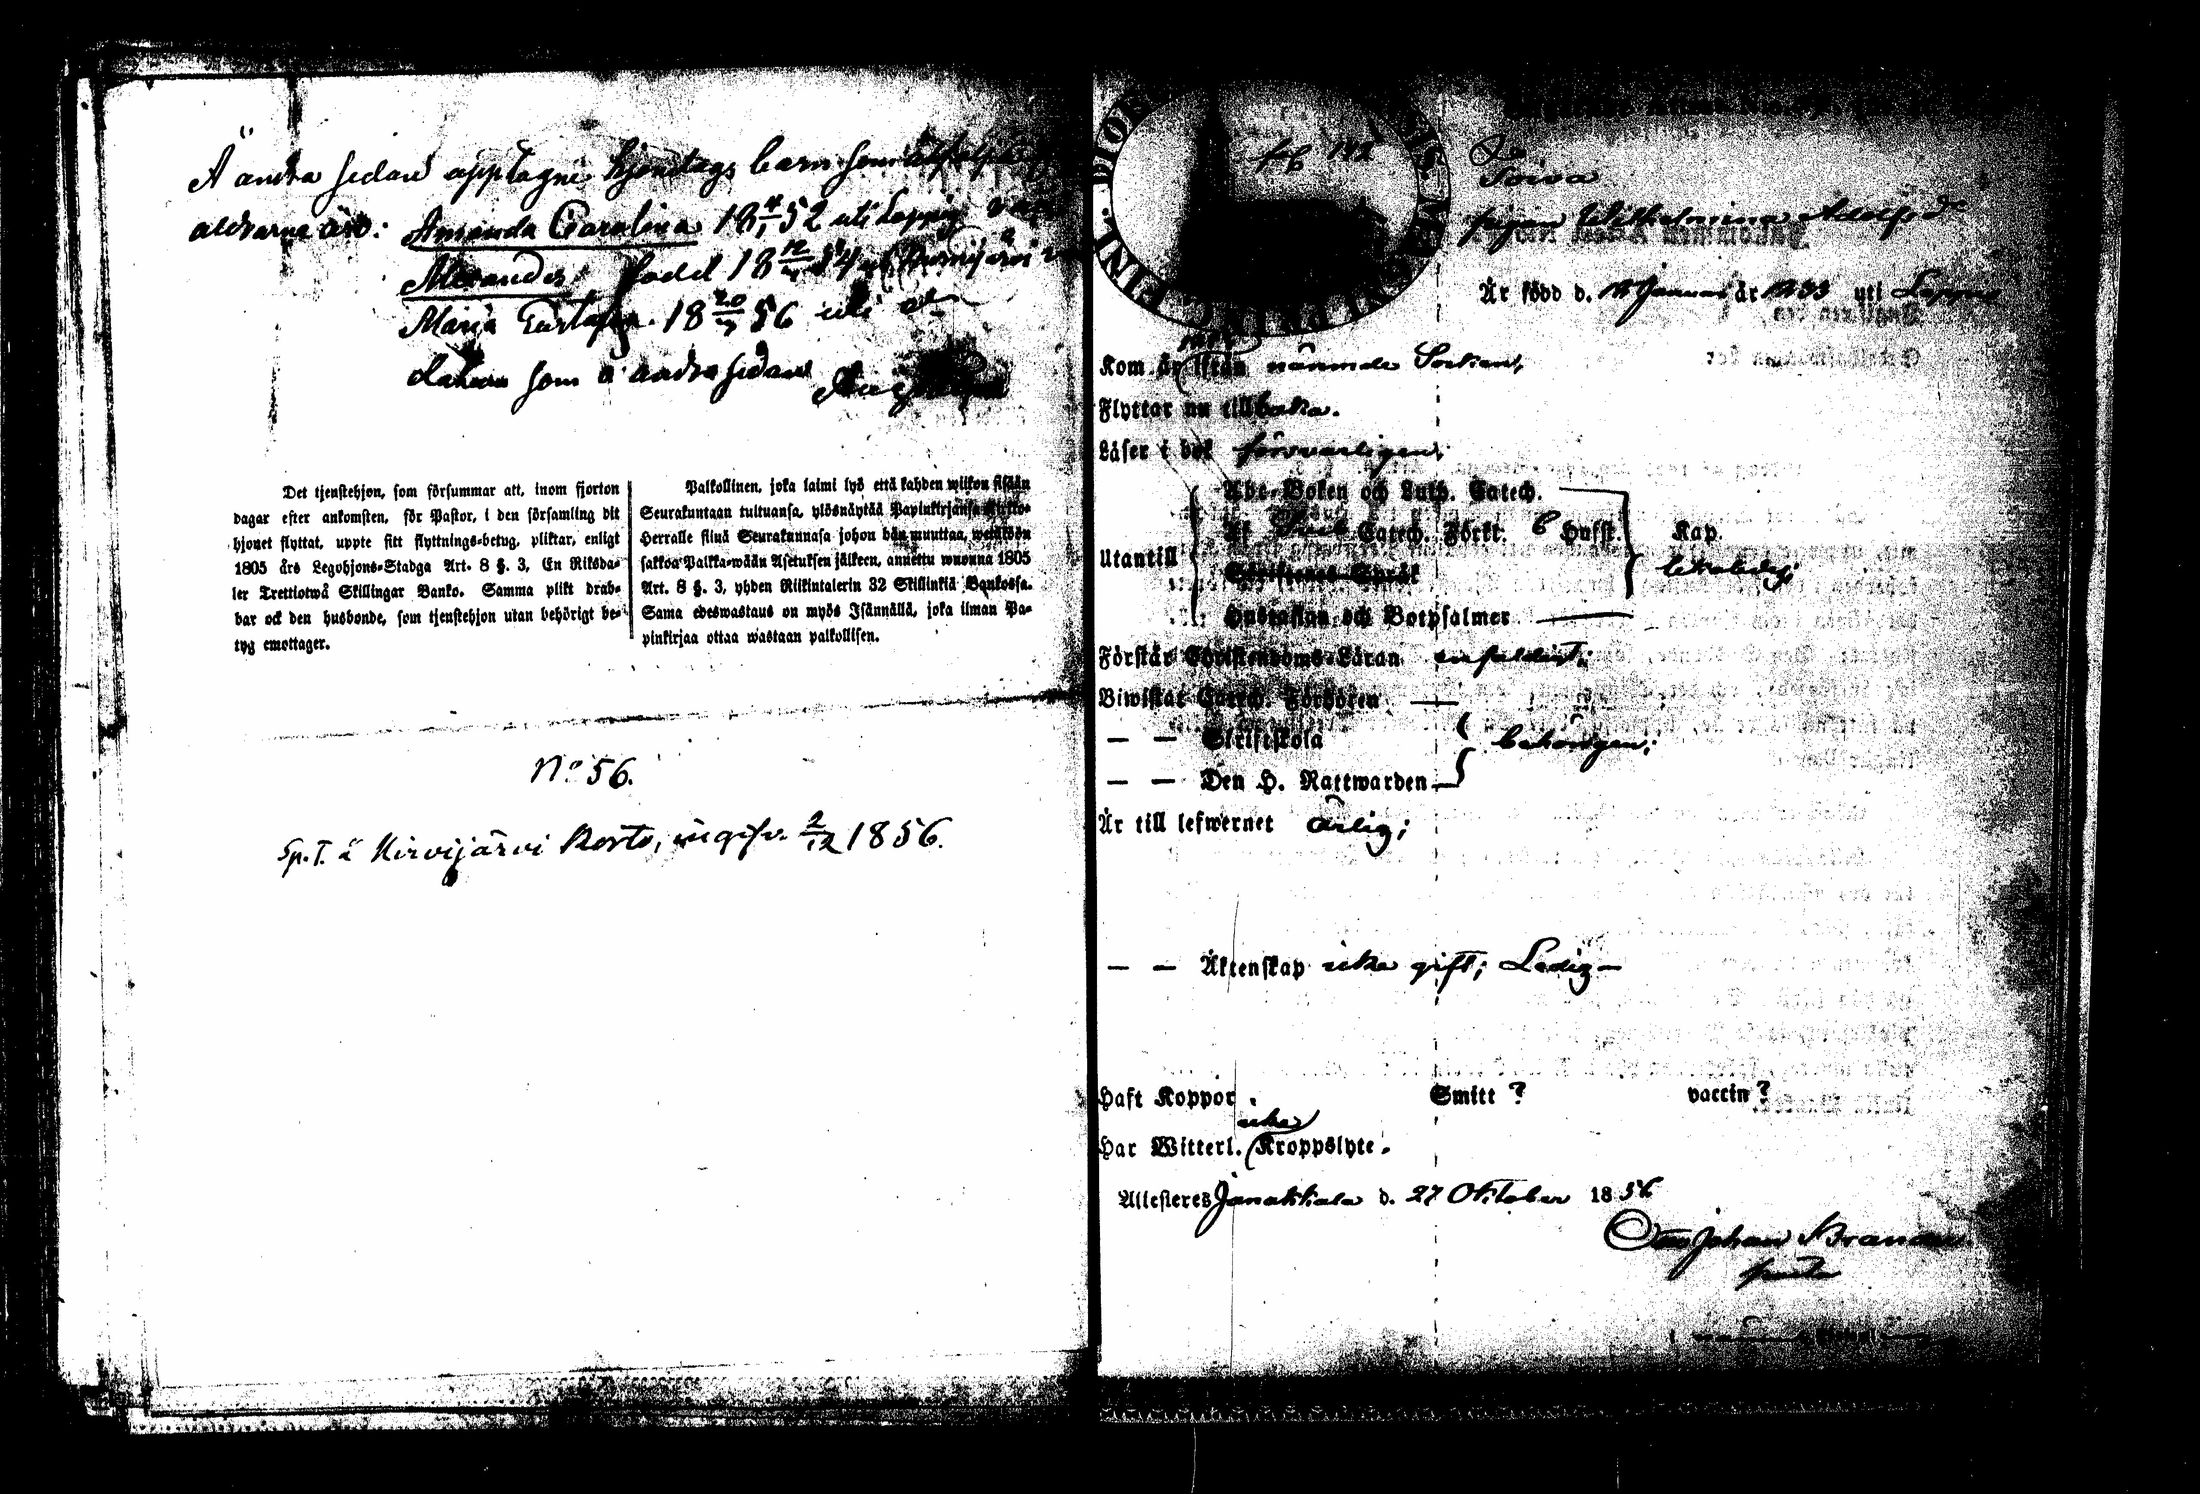 Å andra sidan upptagne hjonelags barn som
äldrarne äro: Amanda Carolina 18 4/1 52 uti Loppis
Alexander född 18 12/4 54 uti Nurmijärvi
Maria Gustafva 18 20/7 56 uti
datum som å andra sidan
Det tjenstehjon, som försummar att, inom fjorton
dagar efter ankomsten, för Pastor, i den församling dit
hjonet flyttat, uppte sitt flyttnings-betyg, pliktar, enligt
1805 års Legohjons-Stadga Art. 8 §. 3, En Riksda-
ler Trettiotwå Skillingar Banko. Samma plikt drab-
bar ock den husbonde, som tjenstehjon utan behörigt be-
tyg emottager.
Palkollinen, joka laimi lyö että kahden wiikon sisään
Seurakuntaan tultuansa, ylösnäytää Papinkirjansa Kirkko-
Herralle siinä Seurakunnasa johon hän muuttaa, wetäköön
sakkoa Palkka-wään Asetuksen jälkeen, annettu wuonna 1805
Art. 8 §. 3, yhden Riikintalerin 32 Skillinkiä Bankossa.
Sama edeswastaus on myös Isännällä, joka ilman Pa-
pinkirjaa ottaa wastaan palkollisen.
No 56.
Sp. T. å Kirvijärvi Rote, ingifv. 2/12 1856.
FINL.
142
pigan Wilhelmina Adolfsdr
Är född d. Januari år 1833 uti Loppis
Kom år ifrån nämnde Socken,
Flyttar nu tillbaka.
Läser i bok försvarligen;
Utantill
Abc-Boken och Luth. Catech.
Af Sveb. Catech. Förkl. 6 Hufst. Kap.
Christenes Språk
Hustaflan och Botpsalmer
Förstår Christendoms-Läran enfaldist;
Biwistat Catech. Förhören
— — Skriftskola behörigen;
— — Den H. Nattwarden
Är till lefwernet ärlig;
— — Äktenskap icke gift; Ledig
Haft Koppor. Smitt? vaccin?
icke
Har Witterl. Kroppslyte.
Attesteres Janakkala d. 27 Oktober 1856
Otto Johan Brander